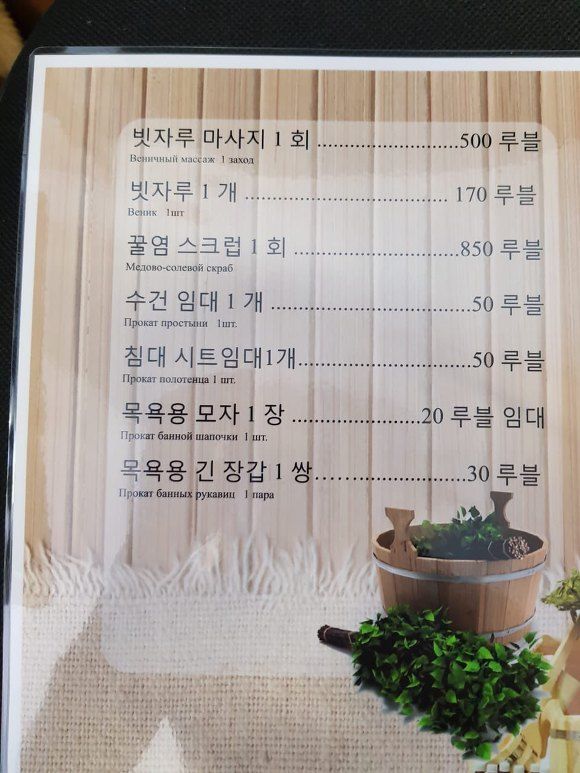 빗자루 마사지 1 회 ....................500 루블
Веничный массаж 1 заход
빗자루 1 개 ............................ 170 루블
Веник 1шт
꿀염 스크럽 1 회 .......................850 루블
Медово-солевой скраб
수건 임대 1 개 ............................50 루블
Прокат простыни 1шт.
침대 시트임대1개........................50 루블
Прокат полотенца 1 шт.
목욕용 모자 1 장 ..................20 루블 임대
Прокат банной шапочки 1 шт.
목욕용 긴 장갑 1 쌍.....................30 루블
Прокат банных рукавиц 1 пара